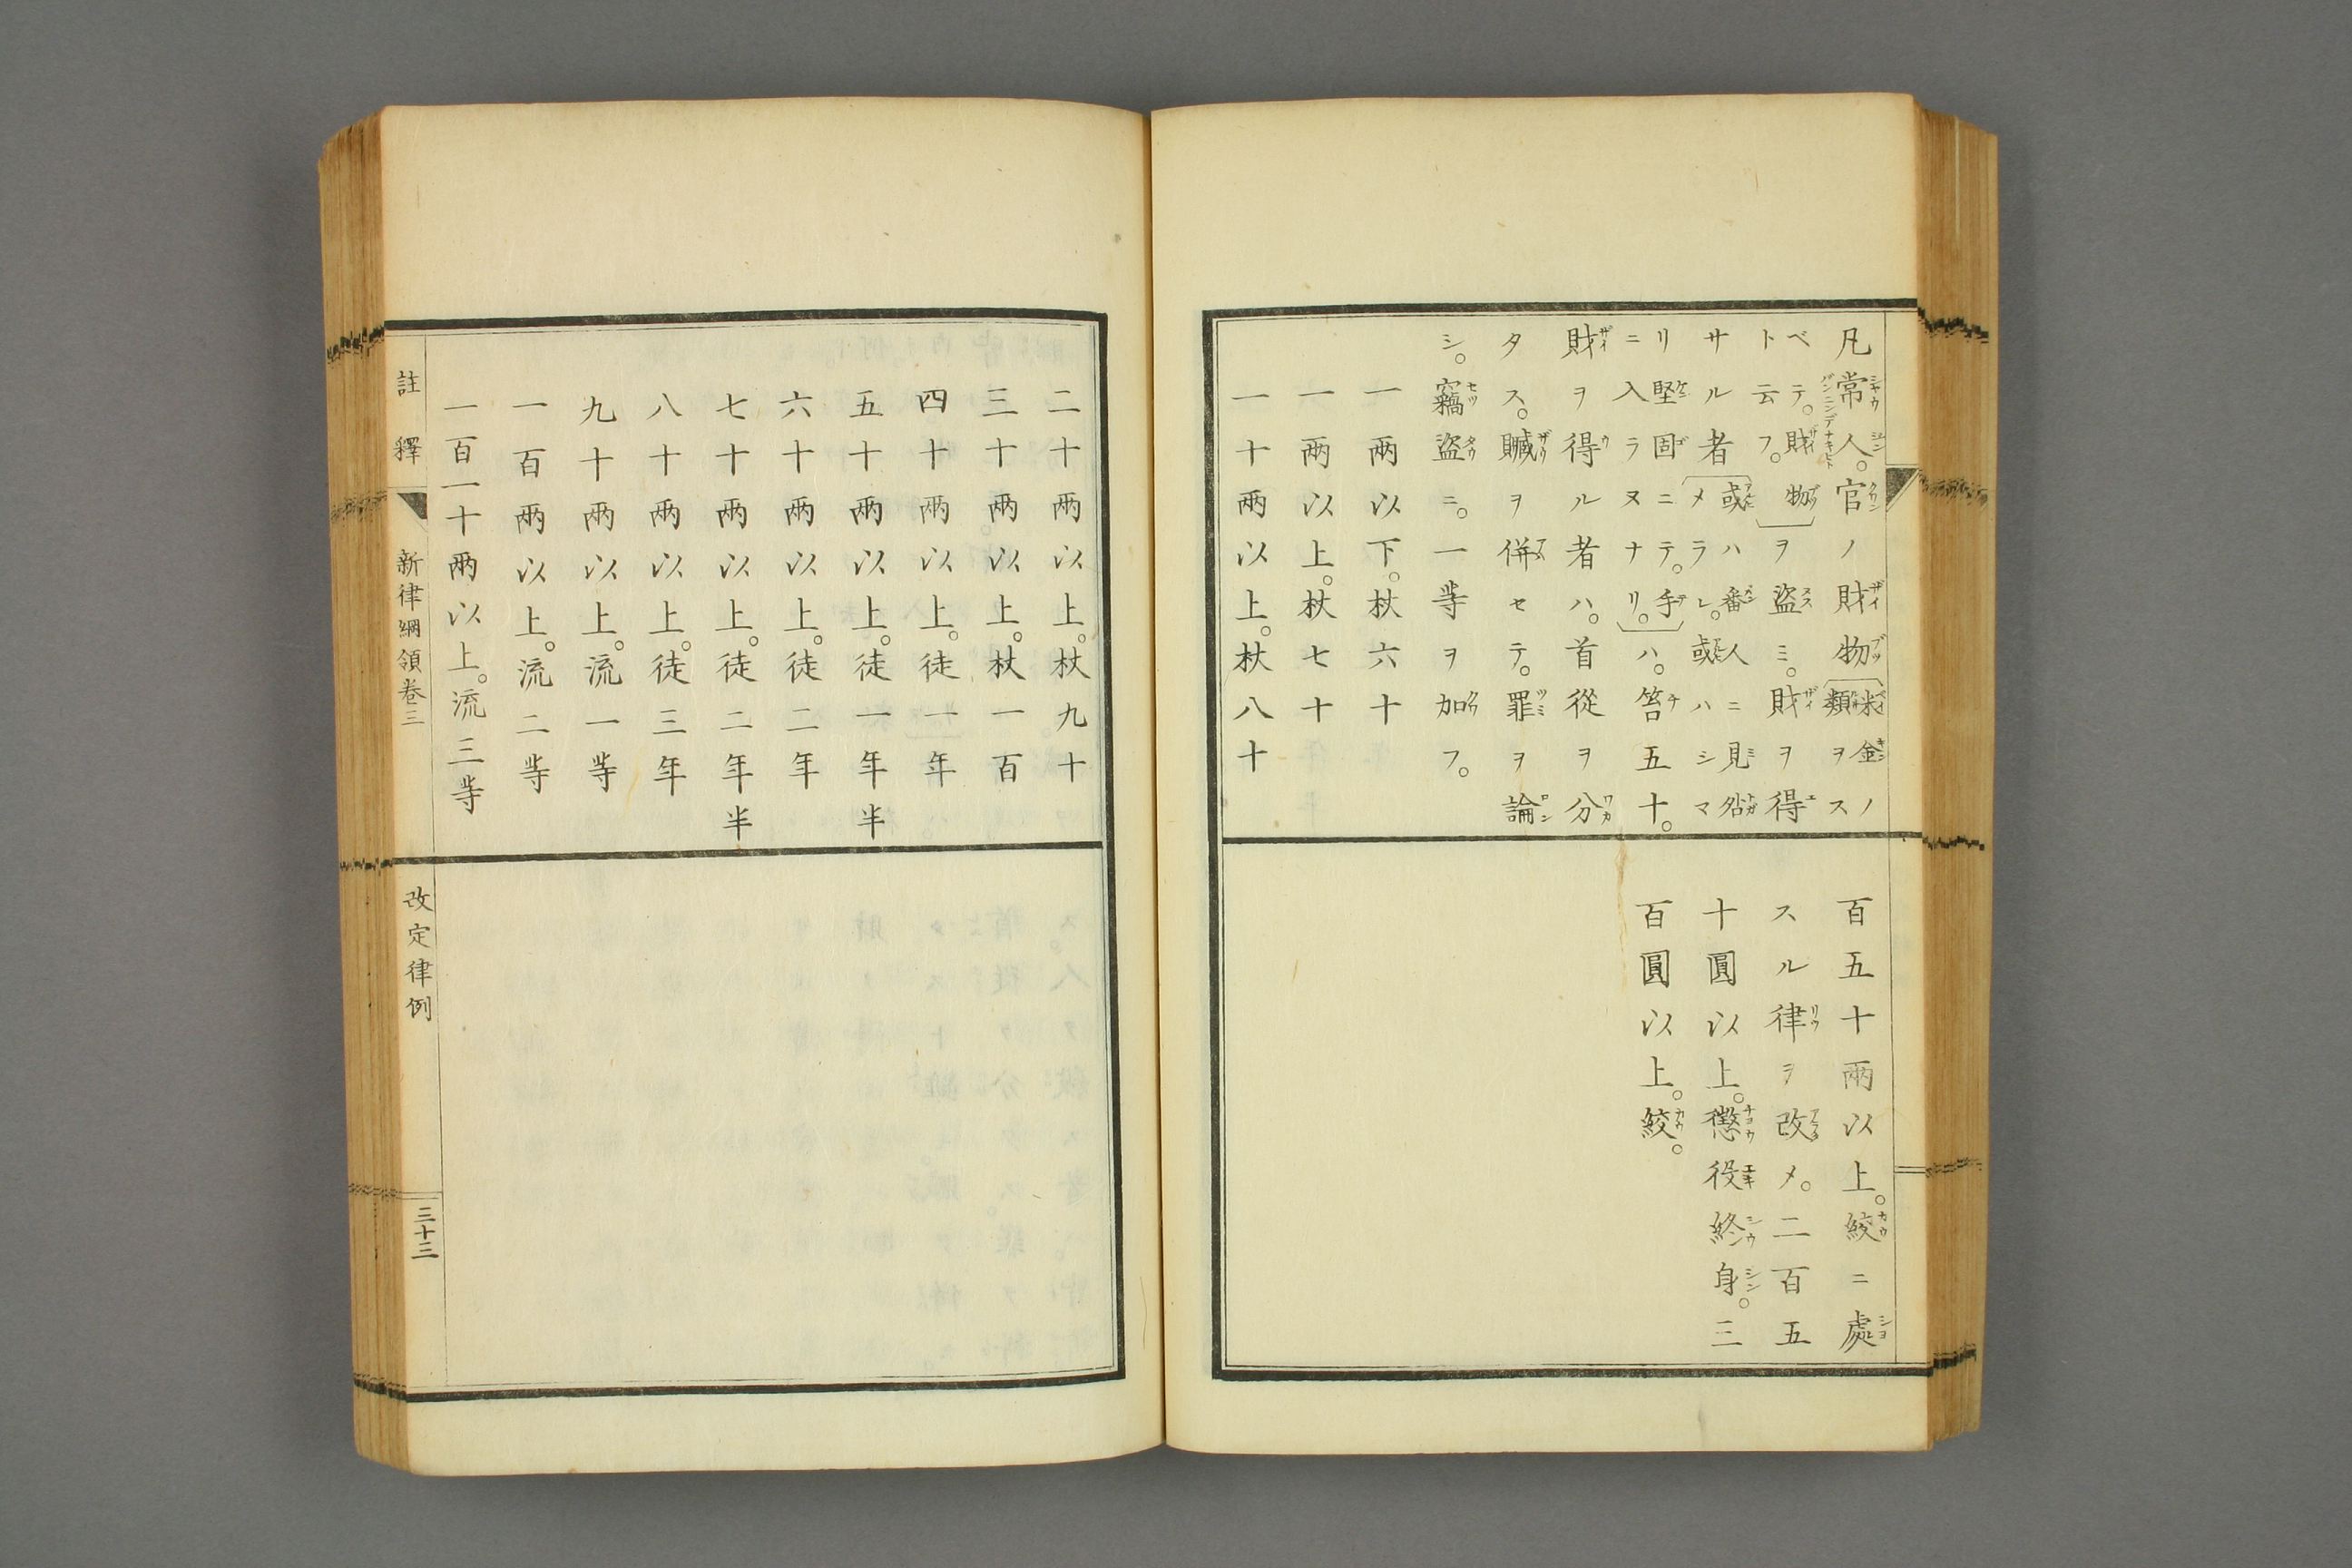 凡常人。官ノ財物〔米金ノ類ヲス
ベテ。財物ト云フ。〕ヲ盗ミ。財ヲ得
サル者〔或ハ番人ニ見咎メラレ。或ハシマ
リ堅固ニテ。手ニ入ラヌナリ。〕ハ。笞五十。
財ヲ得ル者ハ。首從ヲ分
タス。贓ヲ併セテ。罪ヲ論
シ。竊盗ニ。一等ヲ加フ。
一兩以下。杖六十
一兩以上。杖七十
一十兩以上。杖八十
百五十兩以上。絞ニ處
スル律ヲ改メ。二百五
十圓以上。懲役終身。三
百圓以上。絞。
二十兩以上。杖九十
三十兩以上。杖一百
四十兩以上。徒一年
五十兩以上。徒一年半
六十兩以上。徒二年
七十兩以上。徒二年半
八十兩以上。徒三年
九十兩以上。流一等
一百兩以上。流二等
一百一十兩以上。流三等
註釋 新律綱領卷三 改定律例 三十三